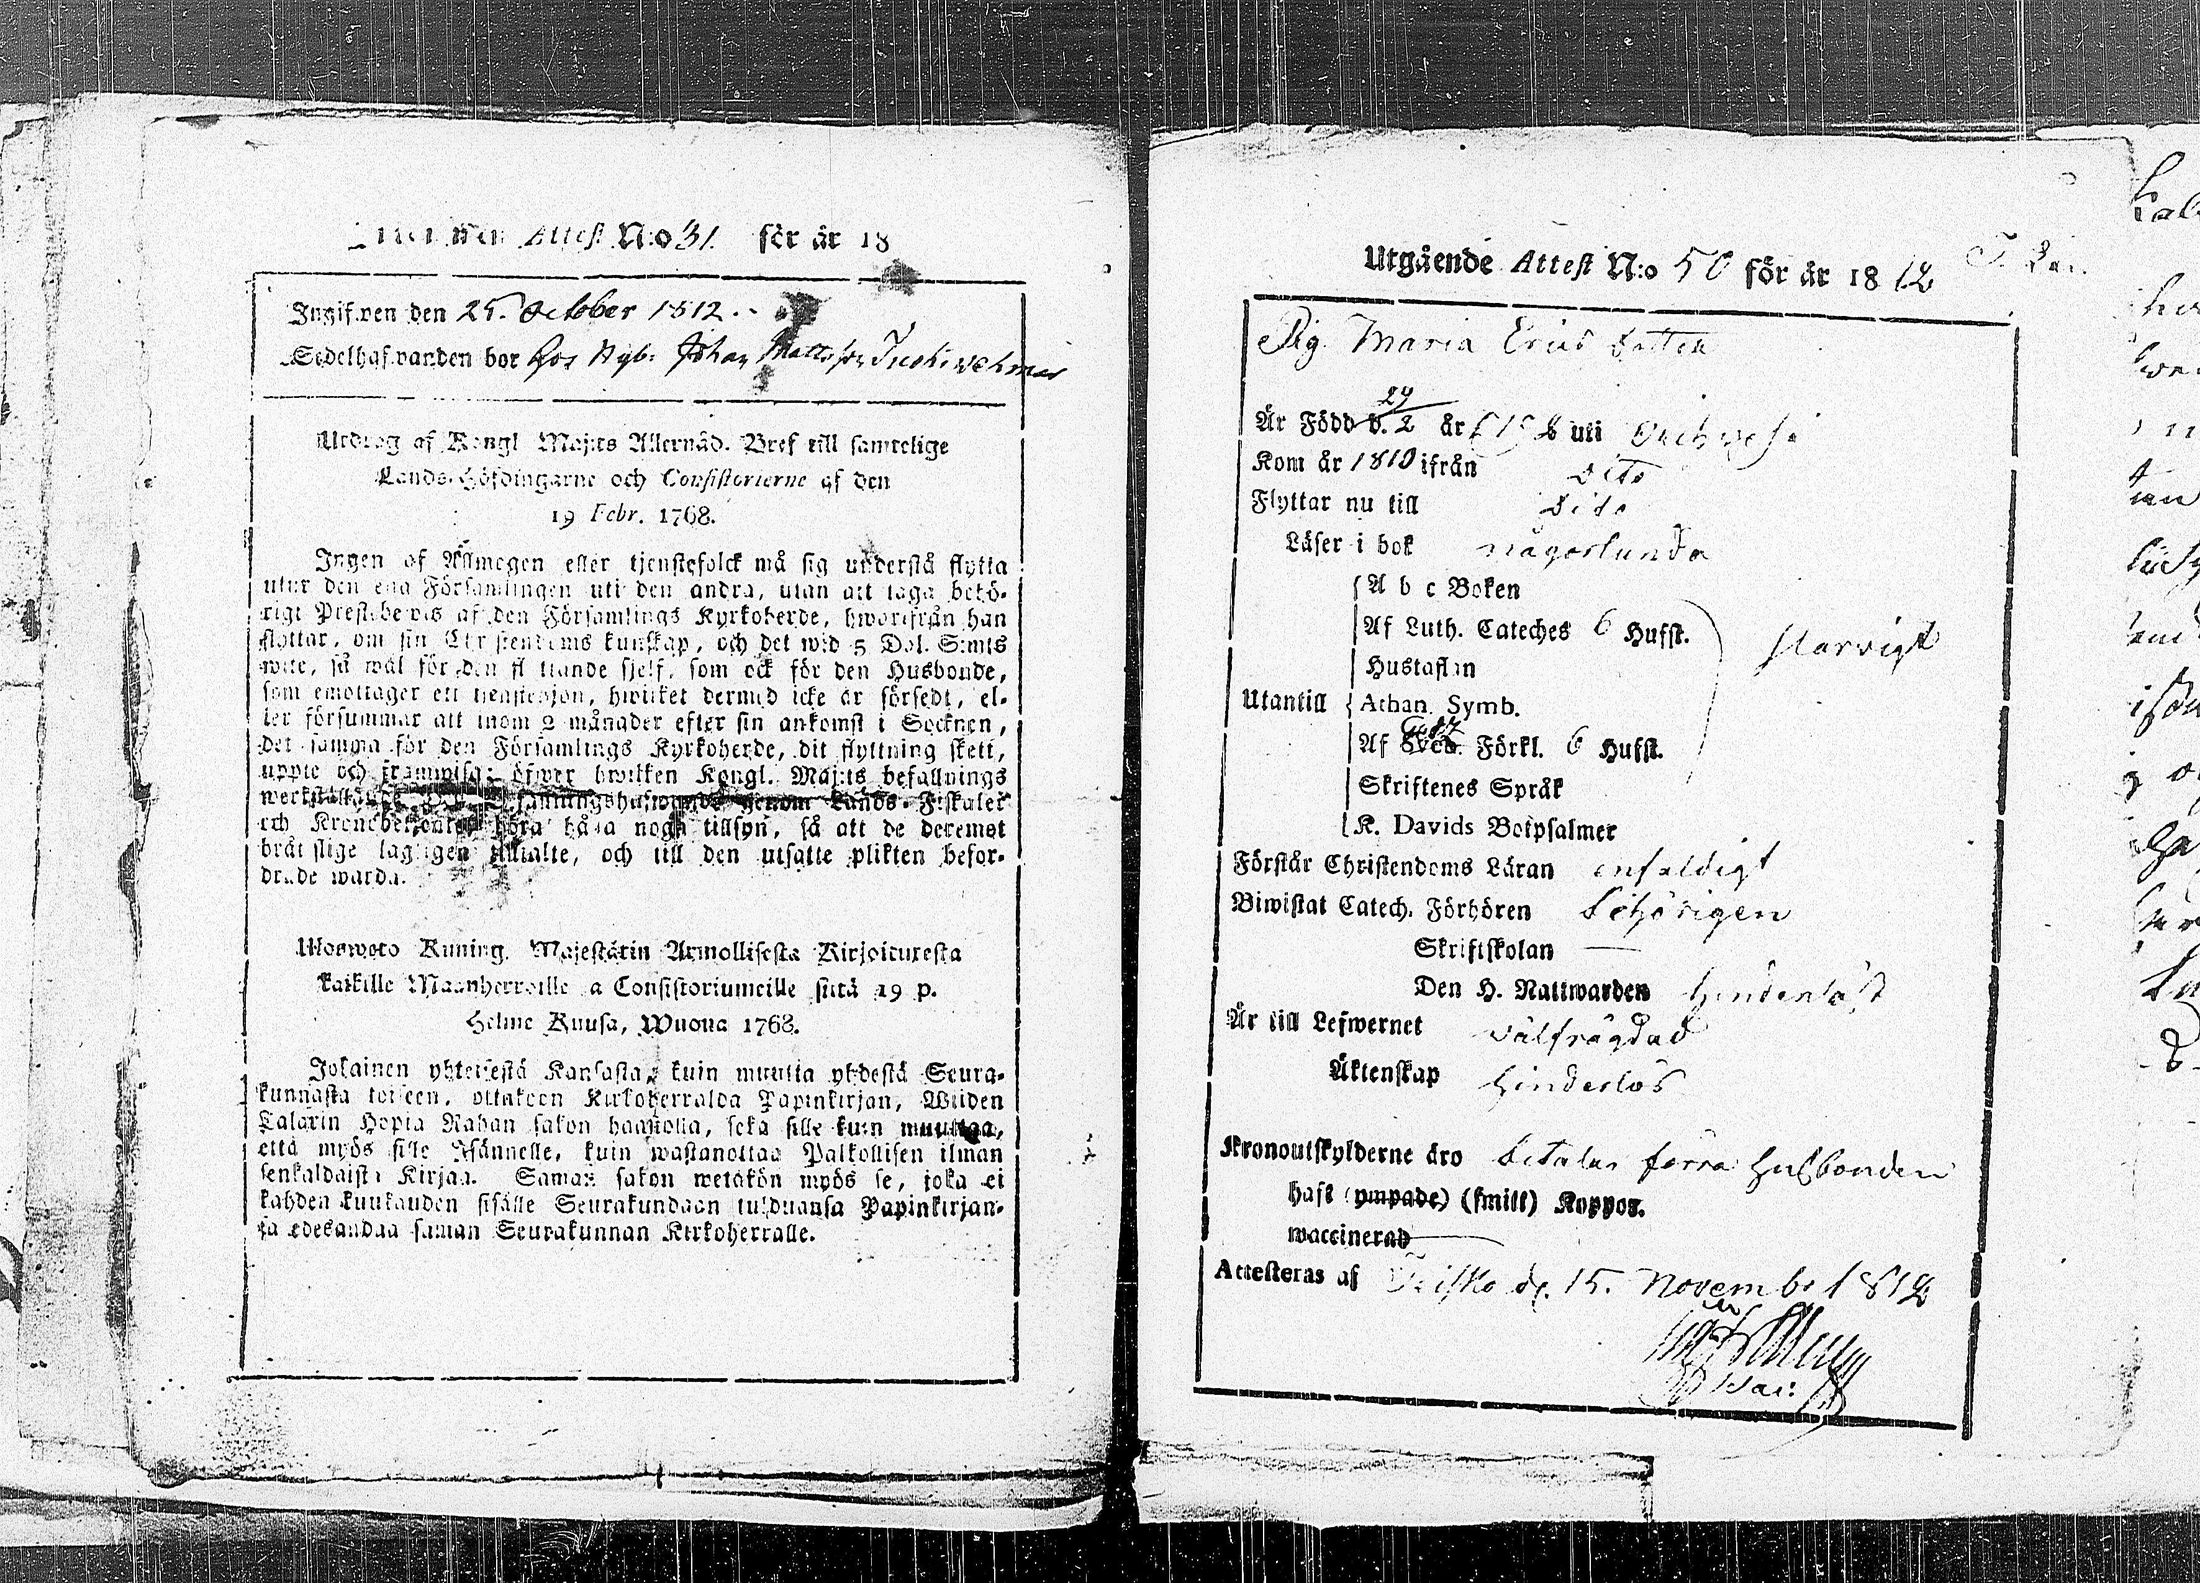 Attest N:o 31. för år 18
Ingifven den 25. October 1812.
Sedelhafwanden bor hos Nyb: Johan Mattsson
Utdrag af Kongl Maj:ts Allernåd. Bref till samtelige
Lands-Höfdingarne och Consistorierne af den
19 Febr. 1768.
Ingen af Allmogen eller tjenstefolck må sig understå flytta
utur den ena Församlingen uti den andra, utan att taga behö-
rigt Prestebevis af den Församlings Kyrkoherde, hworifrån han
flyttar, om sin Christendoms kunskap, och det wid 5 Dal. S:mts
wite, så wäl för den flyttande sjelf, som ock för den Husbonde,
som emottager ett tjenstehjon, hwilket dermed icke är försedt, el-
ler försummar att inom 2 månader efter sin ankomst i Socknen,
det samma för den Församlings Kyrkoherde, dit flyttning skett,
uppte och framwisa; öfwer hwilken Kongl. Maj:ts befallnings
werkställighet genom Lands-Fiskaler
och Kronobetjente böra hafwa noga tillsyn, så att de deremot
bråtslige lagligen tilltalte, och till den utsatte plikten befor-
drade warda.
Uloswoto Kuning. Majestätin Armollisesta Kirjoituxesta
kaikille Maanherroille ja Consistoriumeille siitä 19 p.
Helme Kuusa, Wuona 1768.
Jokainen yhteisestä Kansasta, kuin muutta yhdestä Seura-
kunnasta toiseen, ottakoon Kirkoherralda Papinkirjan, Wiiden
Talarin Hopia Rahan sakon haastolla, sekä sille kuin muuttaa,
että myös sille Isännelle, kuin wastanottaa Palkollisen ilman
senkaldaista Kirjaa. Saman sakon wetäkön myös se, joka ei
kahden kuukauden sisälle Seurakundaan tulduansa Papinkirjan-
sa edesandaa saman Seurakunnan Kirkoherralle.
Utgående Attest N:o 50 för år 1812
Pig. Maria Ericsdotter
Är Född d. 29/2 år uti
Kom år 1810 ifrån dito
Flyttar nu till dito
Läser i bok någorlunda
A b c Boken
Af Luth. Cateches 6 Hufst.
Hustaflan
starvigt
Utantill Athan. Symb.
Af Sveb. Förkl. 6 Hufst.
Skriftenes Språk
K. Davids Botpsalmer
Förstår Christendoms Läran enfaldigt
Biwistat Catech. Förhören behörigen
Skriftskolan —
Den H. Nattwarden hinderlöst
Är till Lefwernet välfrägdad
Äktenskap hinderlös
Kronoutskylderne äro betalar förra husbonden
haft (ympade) (smitt) Koppor.
waccinerad
Attesteras af Kisko d. 15. November 1812